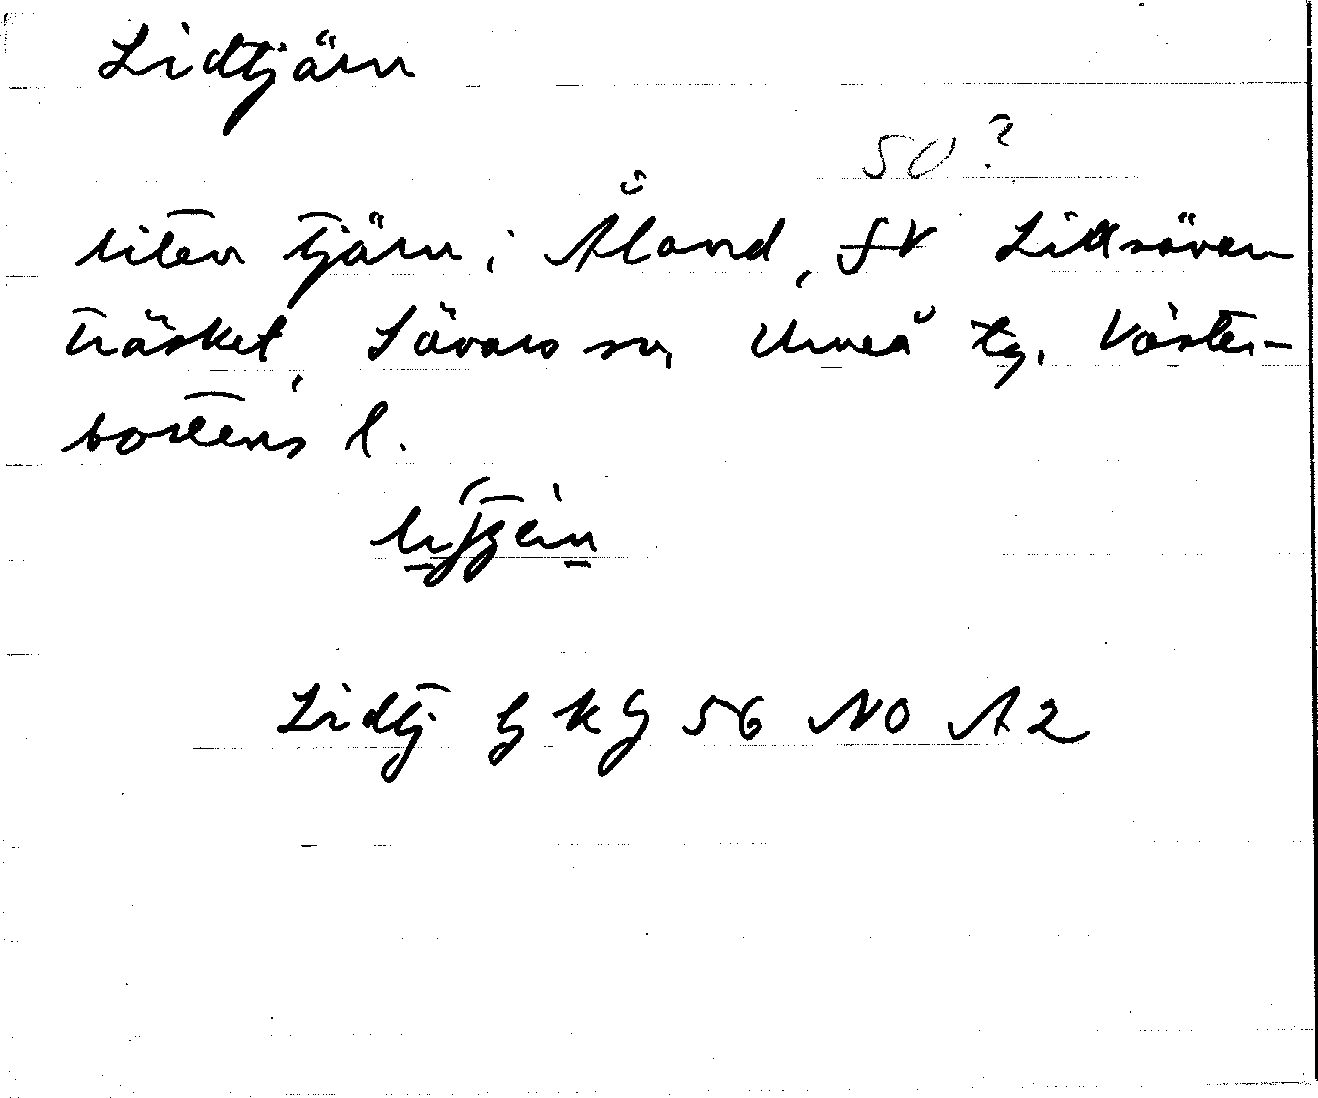 Lidtjärn
SO?
liten tjärn i Åland, SV Lillsävar-
träsket, Sävars sn, Umeå tg, Väster-
bottens l.
Lidtj g k g 56 NO A2